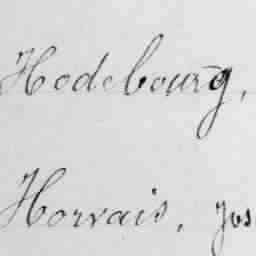 Hodebourg,
Horvais, Jos